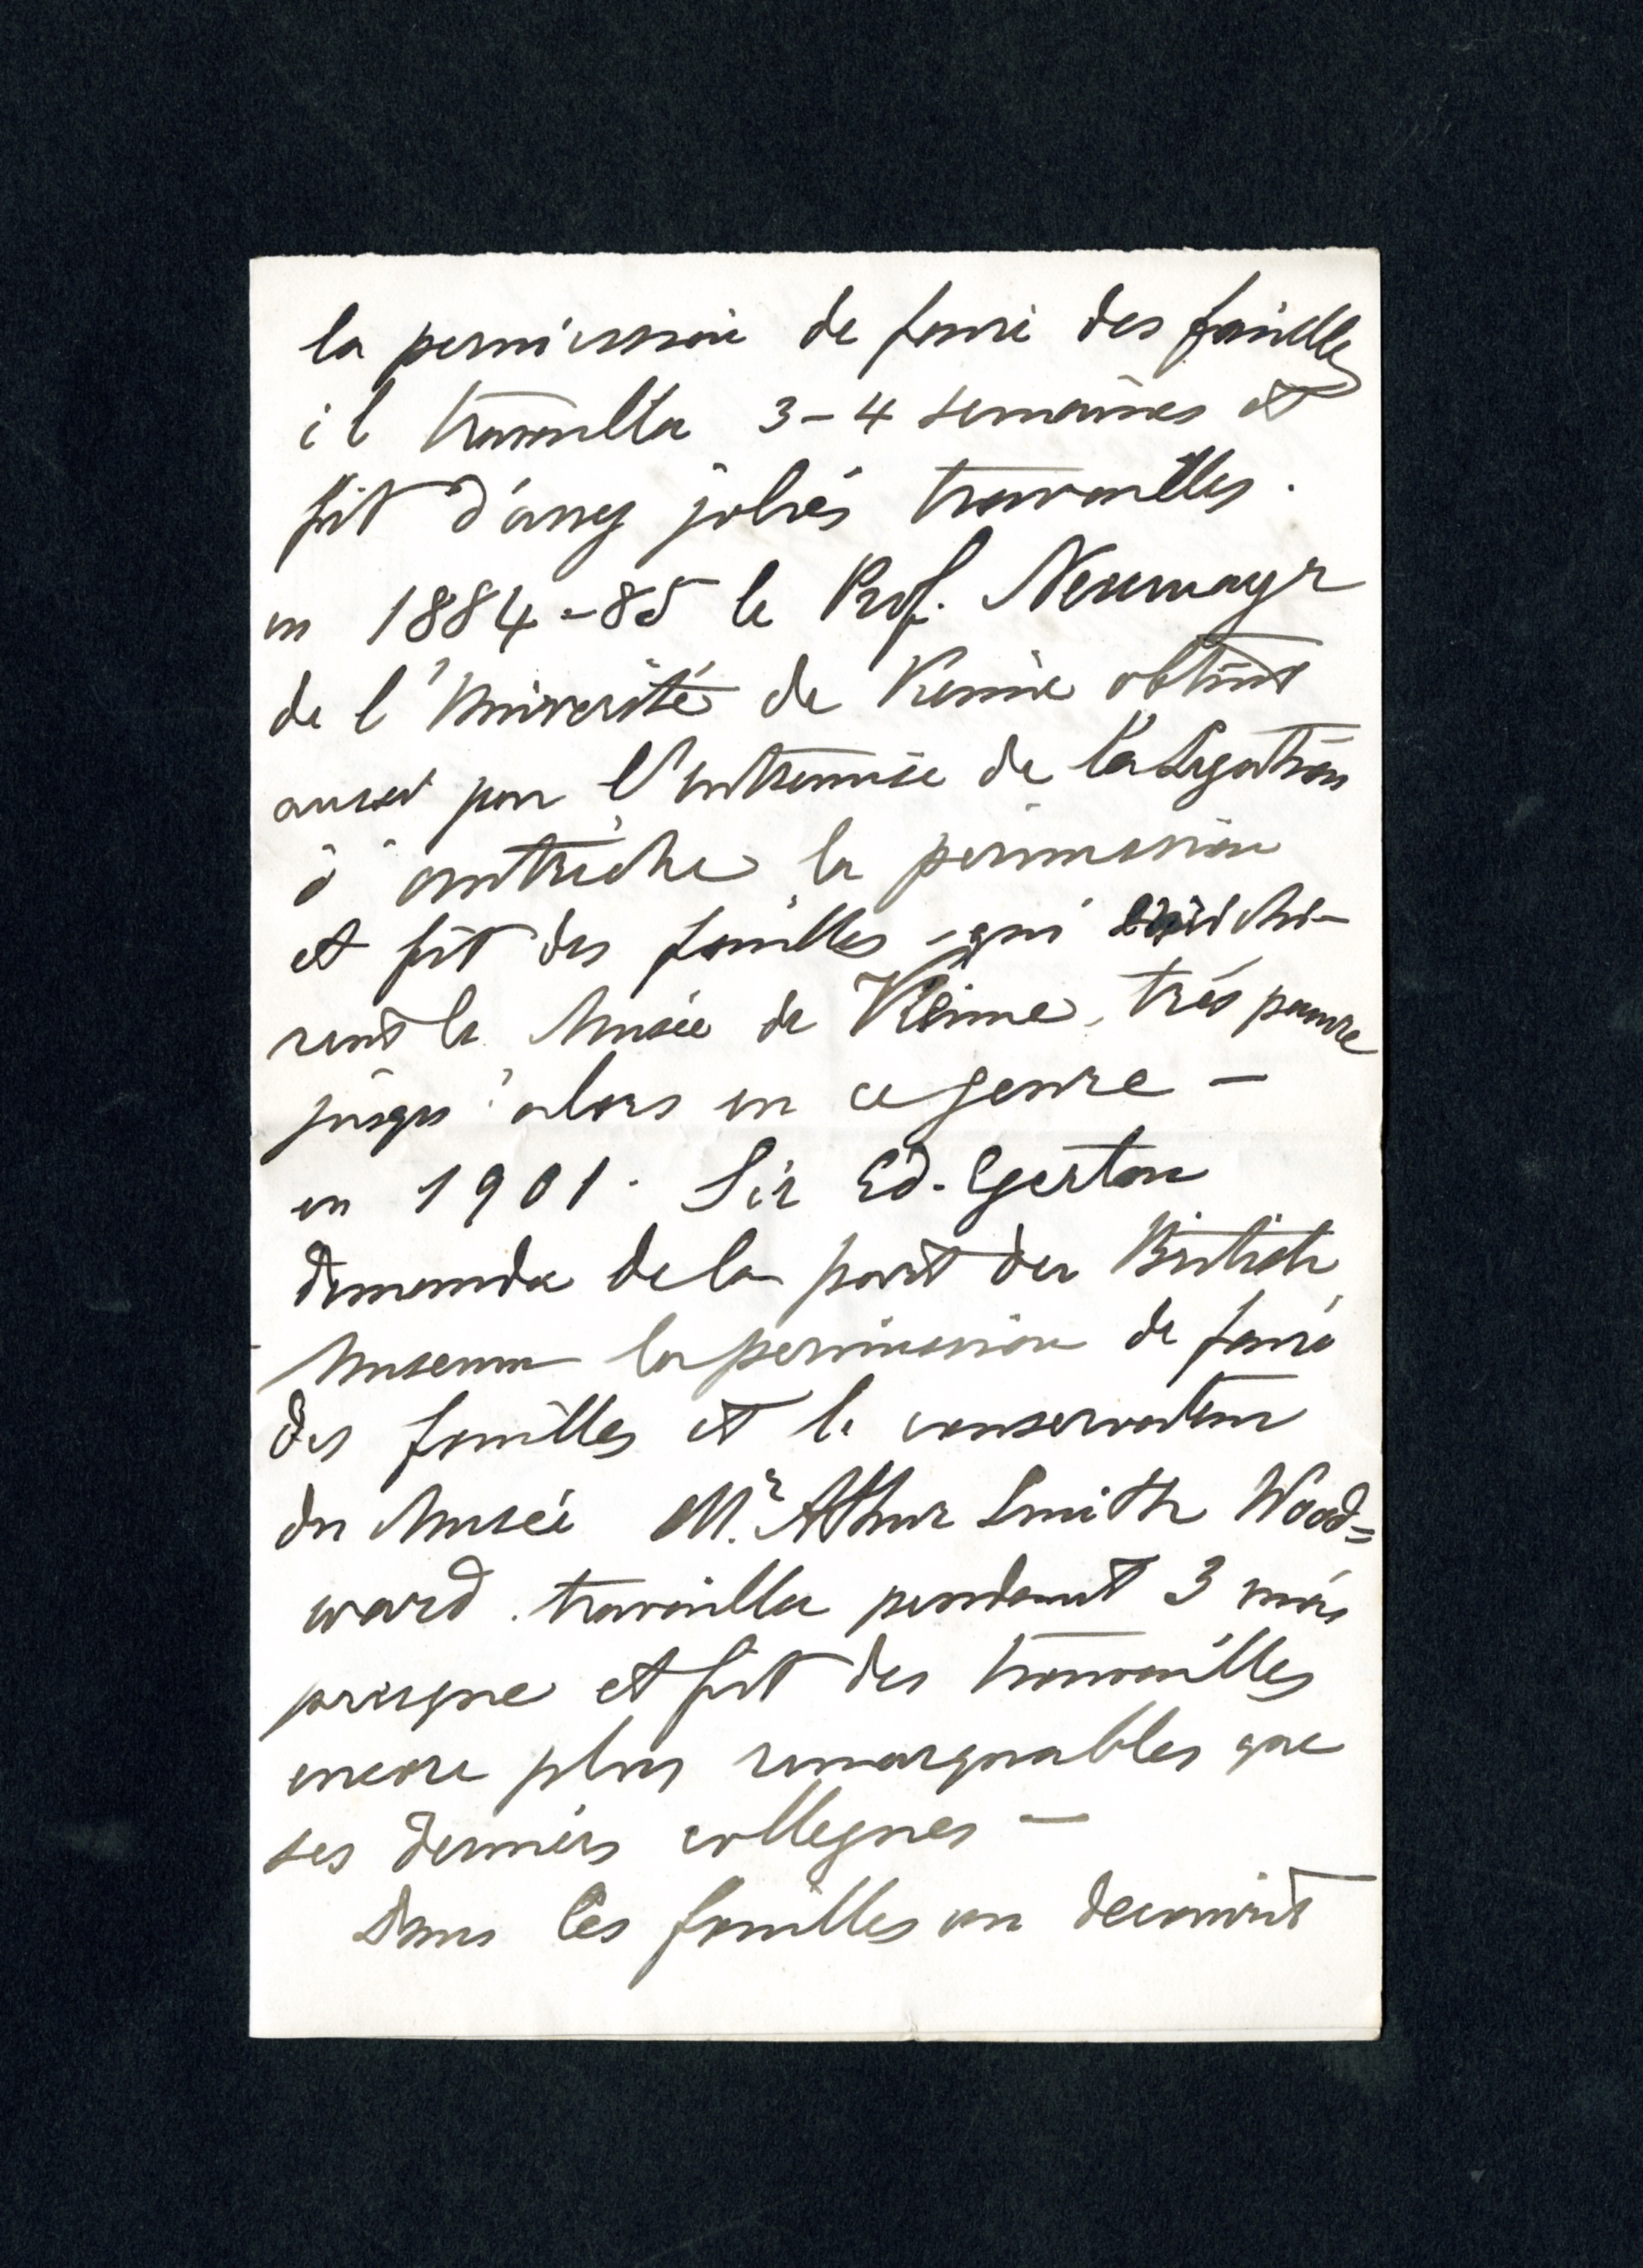 la permission de faire des fouilles
il travailla 3-4 semaines et
fit d'assez jolies travailles.
en 1884-85 le Prof. Neumayr
de l'Université de Vienne obtint
aussi par l'entremise de la Legation
d'autriche la permission
et fit des fouilles qui enrichi-
rent le Musée de Vienne, très pauvre
jusqu'alors en ce genre —
en 1901. Sir Ed. Egerton
demanda de la part du British
Museum la permission de faire
des fouilles et le conservateur
du Musée Mr. Arthur Smith Wood=
ward travailla pendant 3 mois
presque et fit des travailles
encore plus remarquables que
ses derniers collegues —
Dans les fouilles on decouvrit